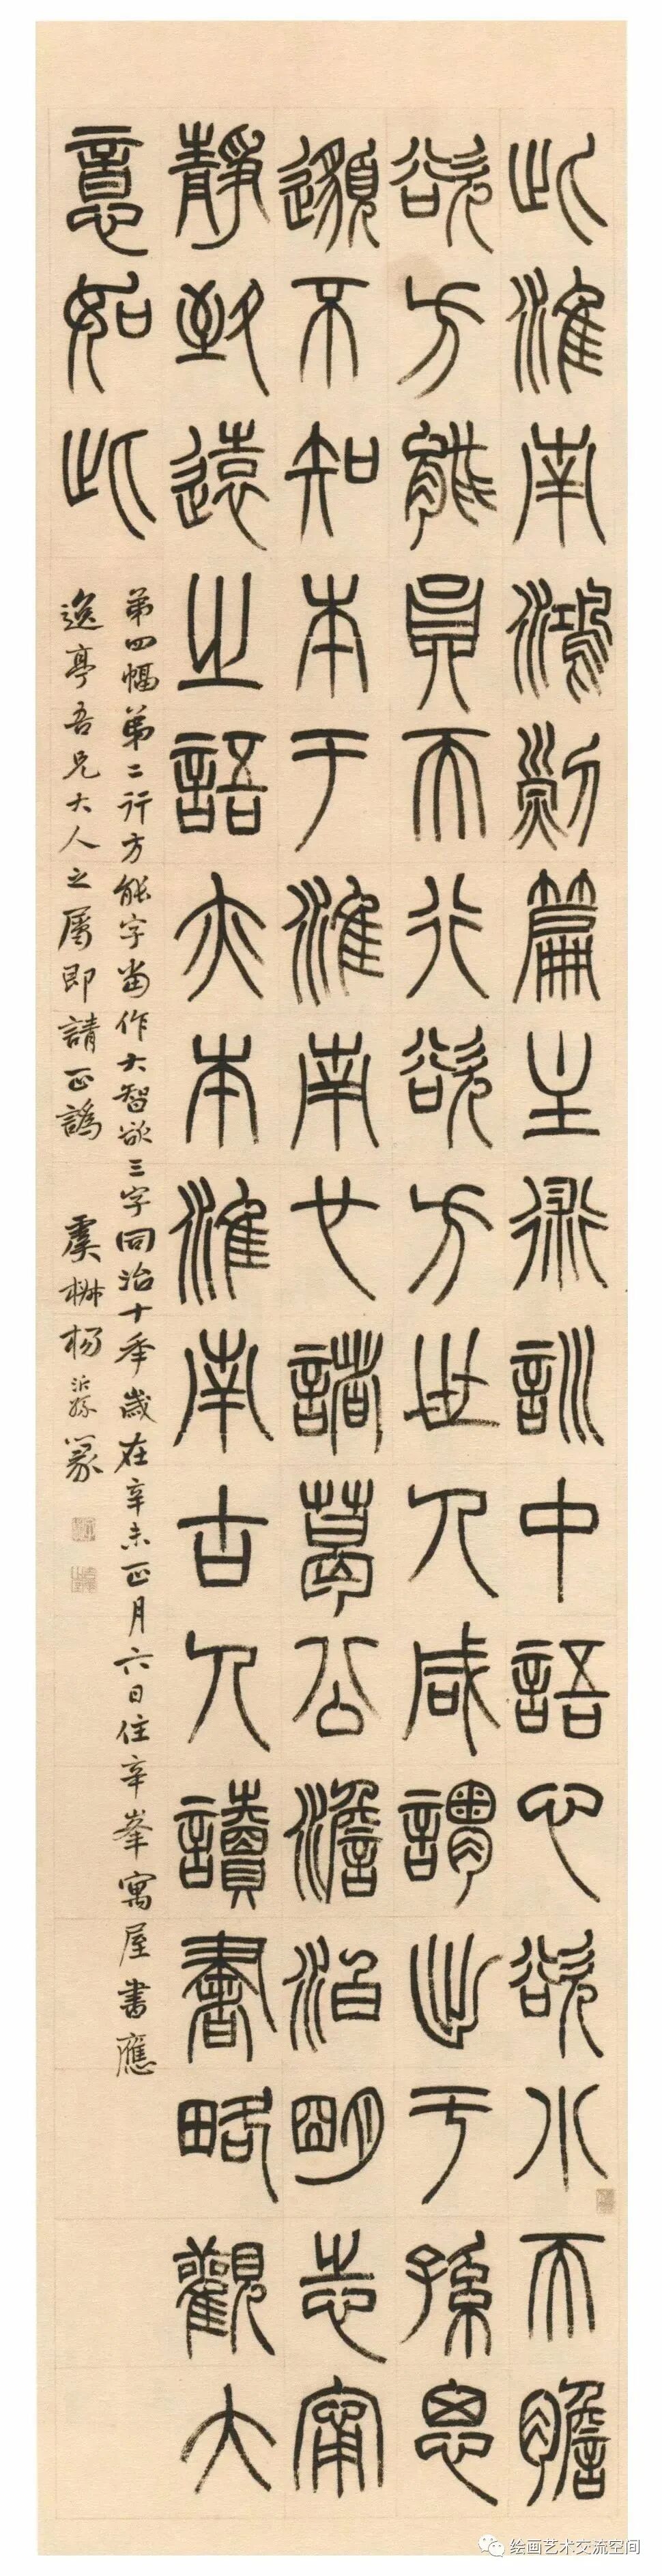 此淮南鴻烈篇主術訓中語心欲小而膽
欲方能員而行欲方世人咸謂出于孫思
邈不知本于淮南也諸葛公澹泊朙志甯
靜致遠之語亦本淮南古人讀書略觀大
意如此
弟四幅弟二行方能字當作大智欲三字同治十年歲在辛未正月六日住辛峯寓屋書應
逸亭吾兄大人之屬即請正譌 虞 楊沂孫篆
绘画艺术交流空间